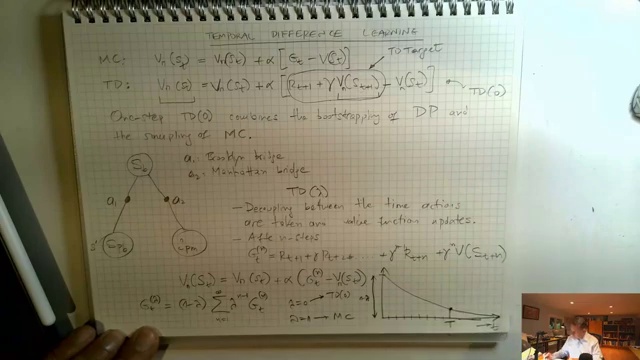 TEMPORAL DIFFERENCE LEARNING
MC: Vπ(St) = Vπ(St) + α [Gt - V(St)]
TD Target
TD: Vπ(St) = Vπ(St) + α [Rt+1 + γ Vπ(St+1) - Vπ(St)]
TD(0)
One-step TD(0) combines the bootstrapping of DP and
the sampling of MC.
a1: Brooklyn bridge
a2: Manhattan bridge
a1
a2
s'
TD(λ)
- Decoupling between the time actions
are taken and value function updates.
- After n-steps
Gt(n) = Rt+1 + γ Rt+2 + ... + γ Rt+n + γⁿ V(St+n)
Vπ(St) = Vπ(St) + α (Gt(n) - Vπ(St))
Gt(λ) = (1-λ) Σ λⁿ⁻¹ Gt(n)
n=1
λ=0 → TD(0)
→ MC
T
t